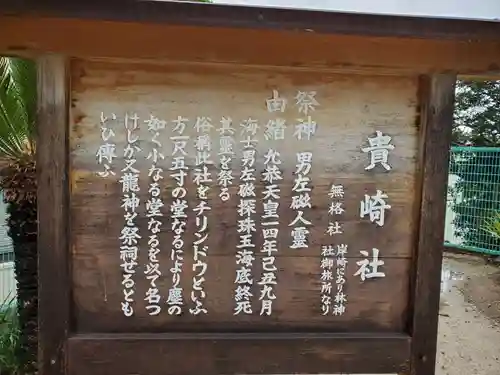 貴崎社
無格社
岸崎にあり林神
社御旅所なり
祭神 男左磁人霊
由緒 允恭天皇一四年己丑九月
海士男左磁探珠玉海底終死
其霊を祭る
俗稱此社をチリンドウといふ
方一尺五寸の堂なるにより塵の
如く小なる堂なるを以て名つ
けしか又龍神を祭祠せるとも
いひ傳ふ